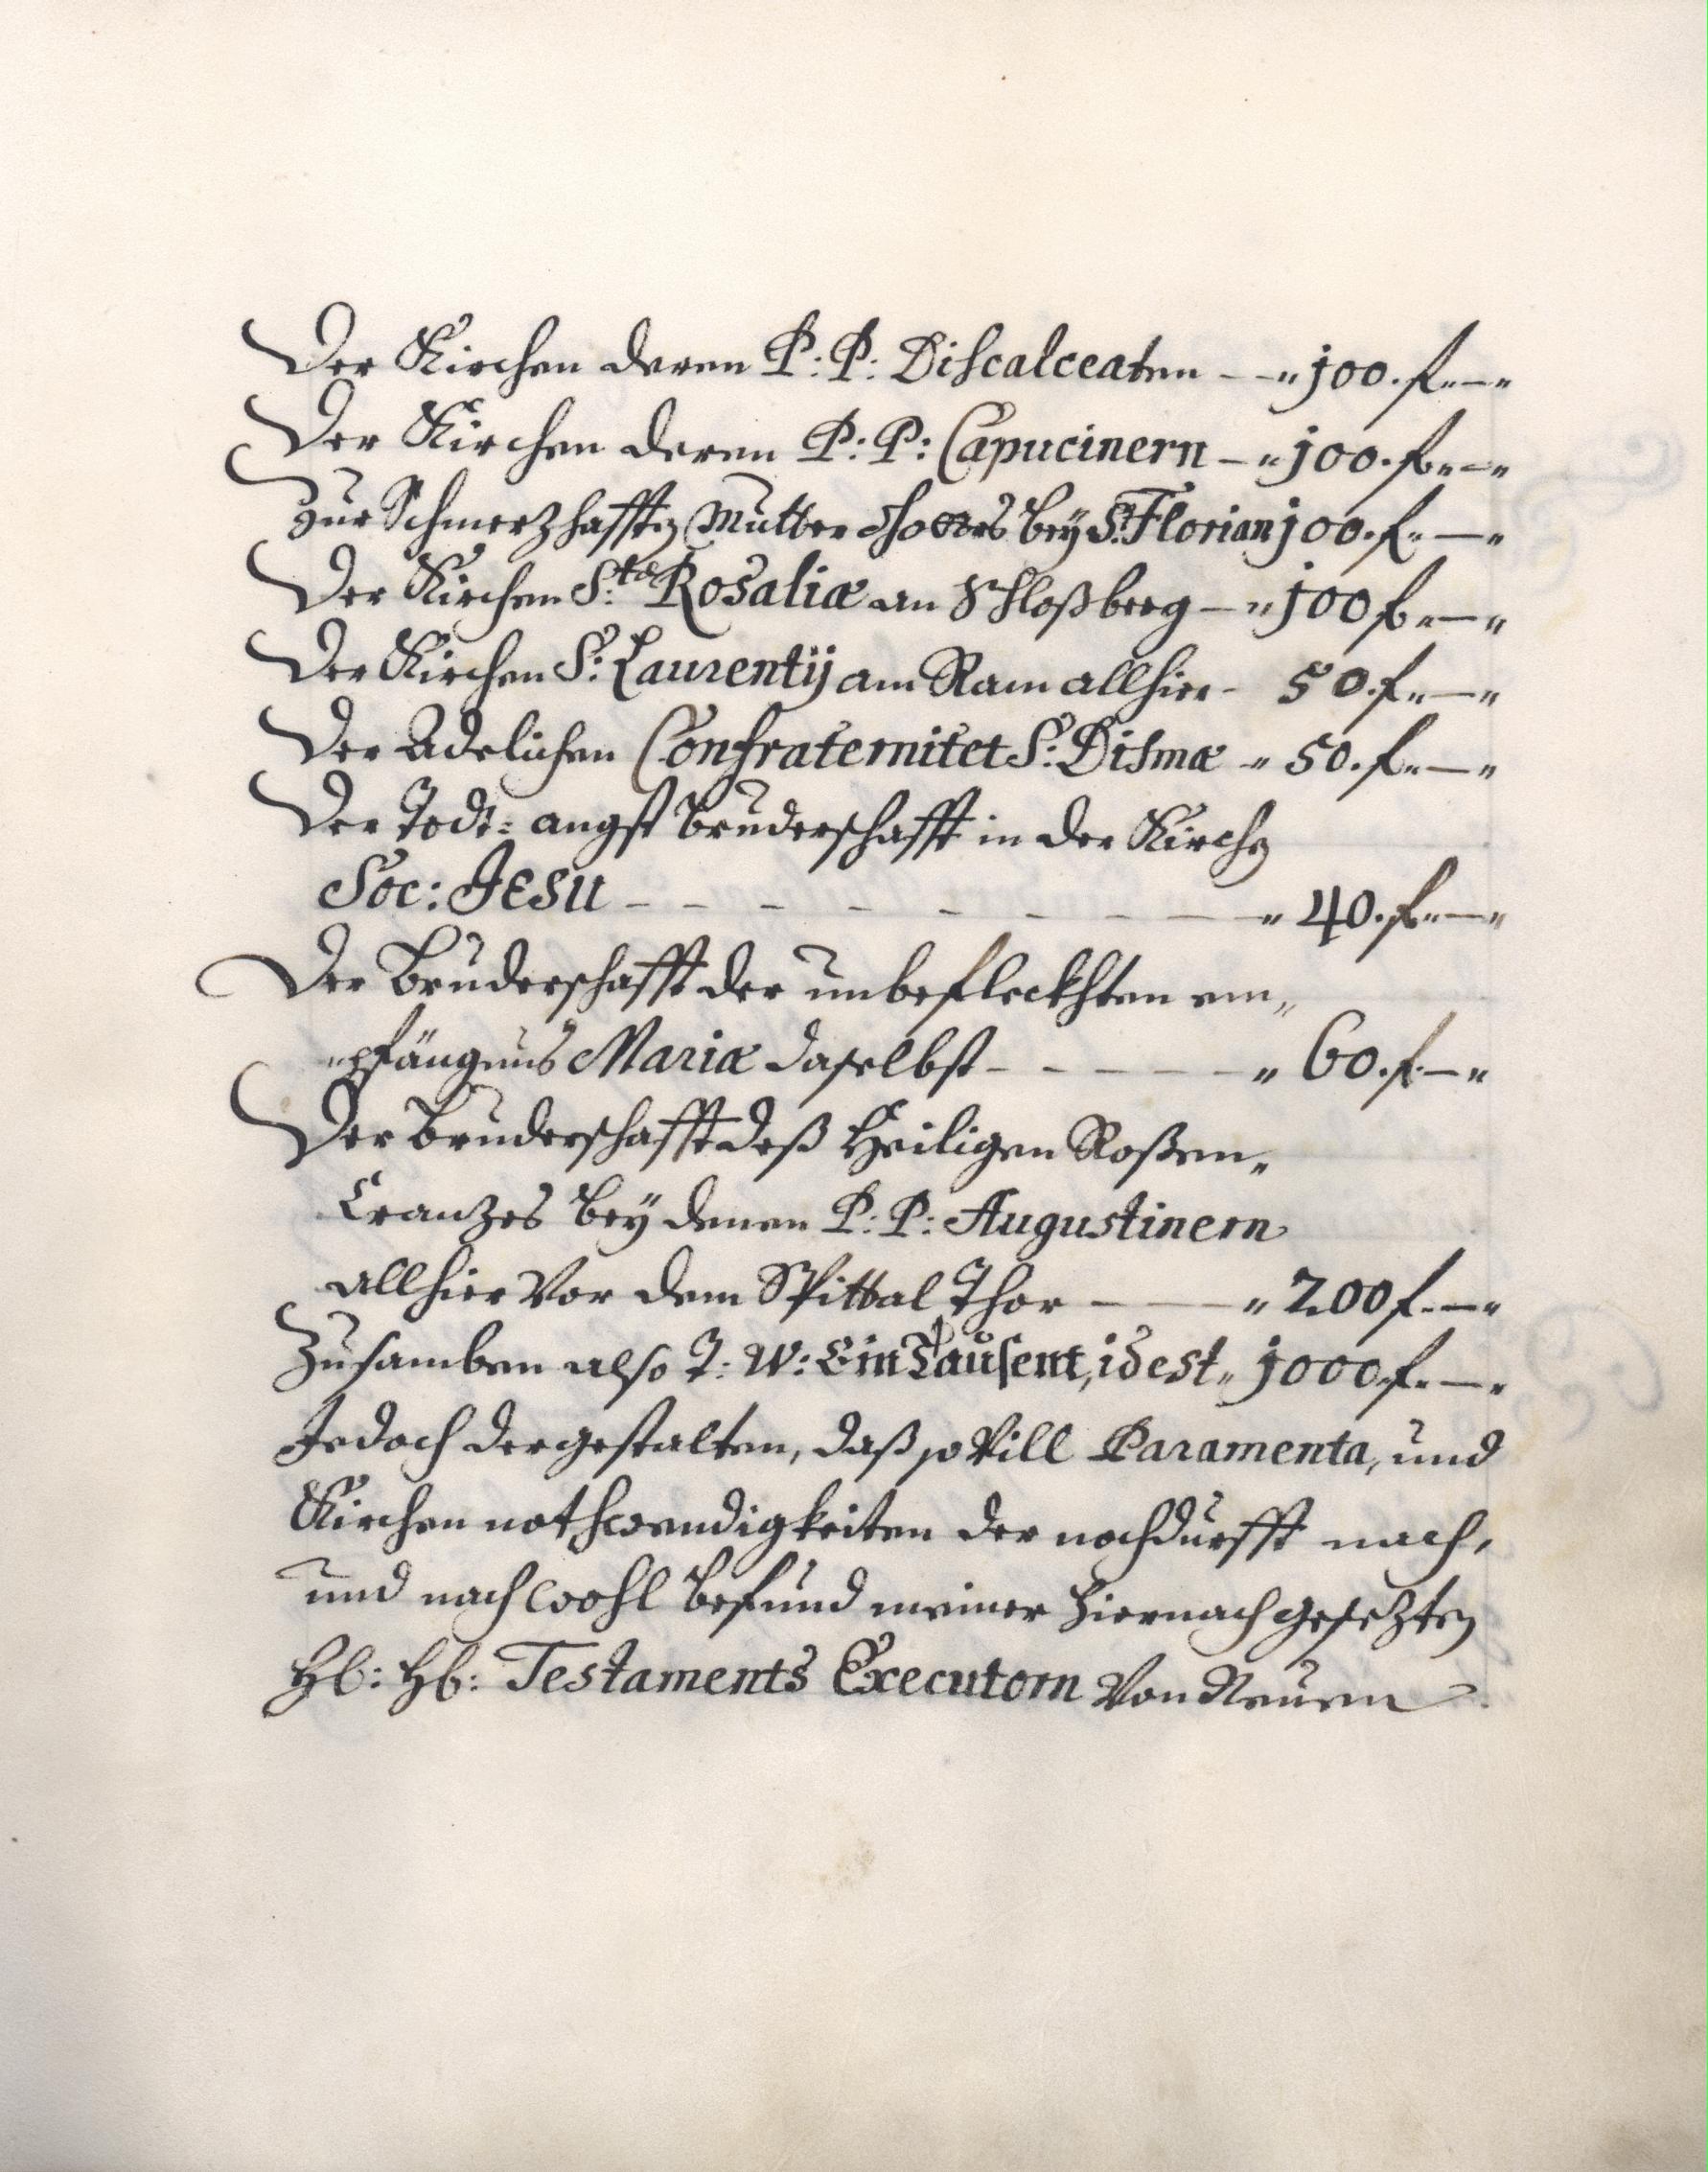 Der Kirchen deren P: P: Discalceaten – –„ 100. f„ — „
Der Kirchen deren P: P: Capucinern –„ 100. f„ — „
Zur Schmerzhafften Mutter Gottes bey S: Florian 100. f„ — „
Der Kirchen S:ta Rosaliæ am Schloßberg –„ 100 f„ — „
Der Kirchen S: Laurentij am Rain allhier – 50. f„ — „
Der Adelichen Confraternitet S: Dismæ „ 50. f„ — „
Der Todt= angst bruderschafft in der Kirchen
Soc: Jesu – – – – – – – – „ 40. f„ — „
Der Bruderschafft der unbefleckhten em„
„pfängnus Mariæ daselbst – – – – – „ 60. f„ — „
Der Bruderschafft deß Heiligen Roßen„
Cranzes bey denen P: P: Augustinern
allhier Vor dem Spittal Thor — — „ 200 f„ — „
Zusamben also T: W: Ein Tausent, id est„ 1000 f„ — „
Jedoch dergestalten, daß so Vill Paramenta, und
Kirchen nothwendigkeiten der nothdurfft nach,
und nach wohl befund meiner hiernach gesezten
Hl: Hl: Testaments Executorn Von Neuem